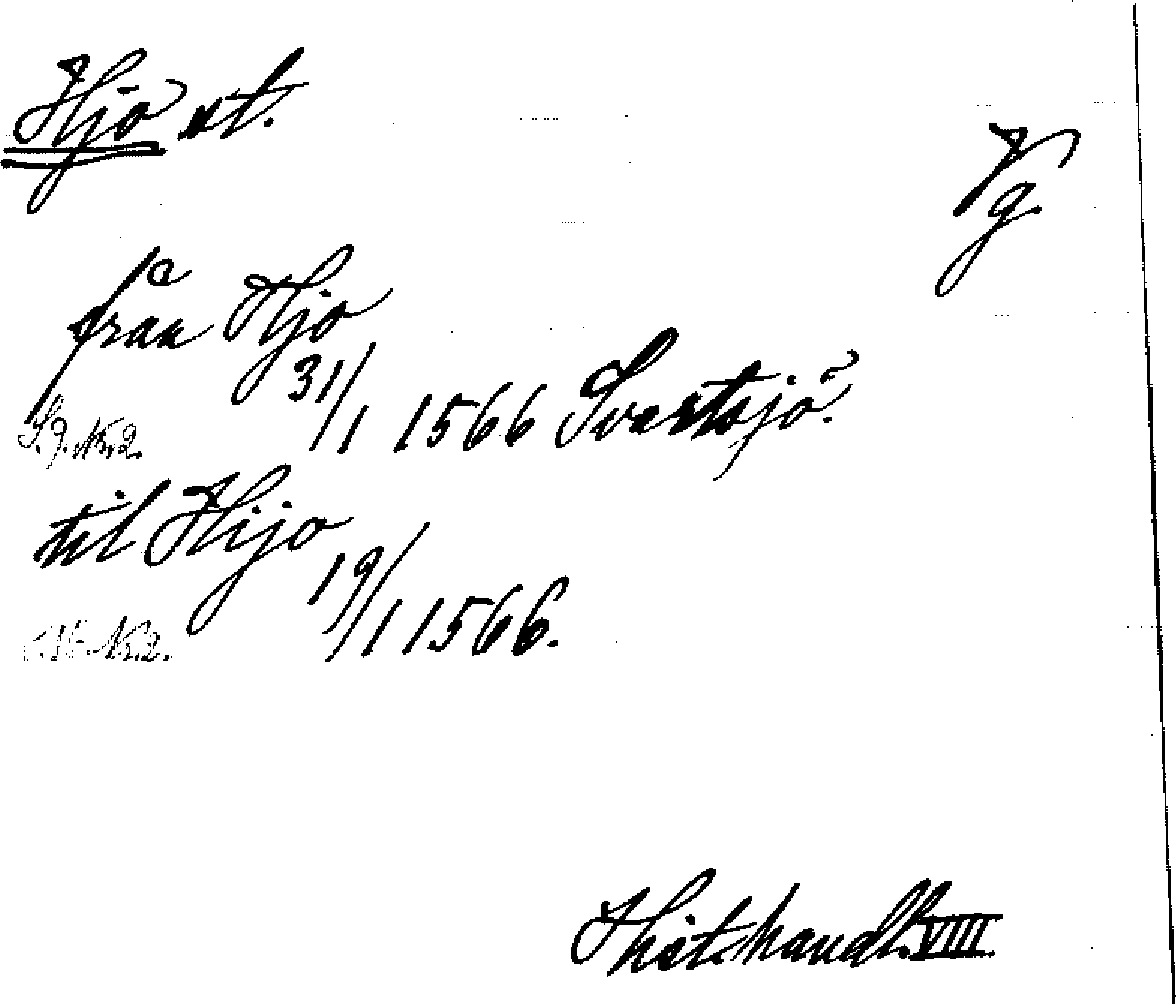 Hjo st.
Vg
från Hjo
31/1 1566 Svartsjö.
S. 9. N:2.
til Hijo
19/1 1566.
N:2.
Hist. handl. VIII